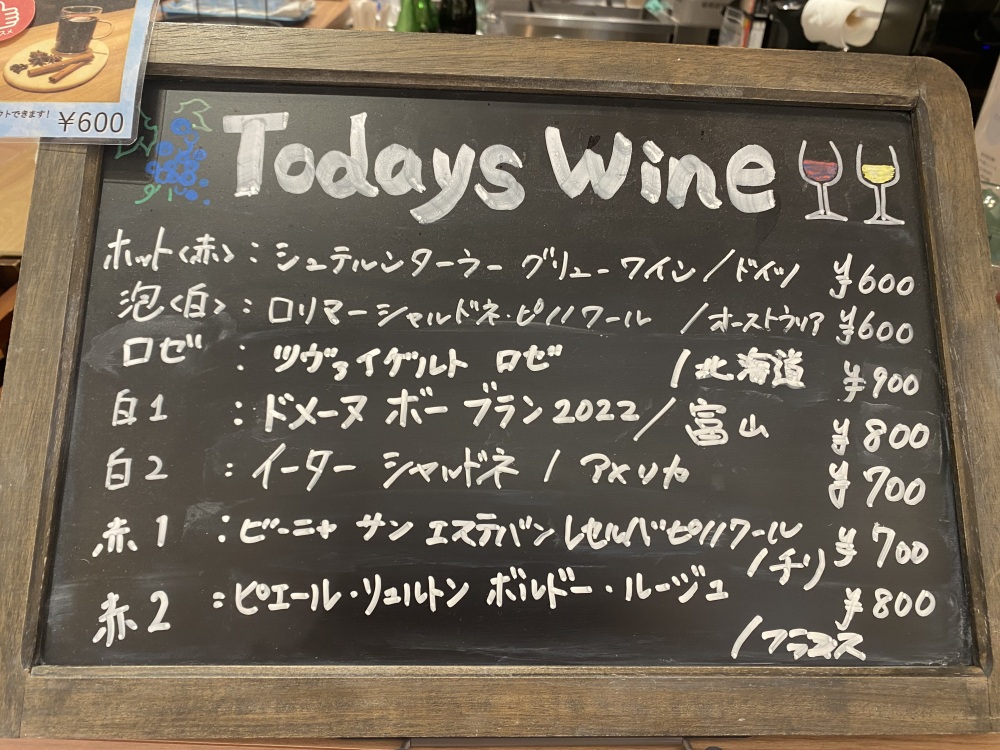 スメ
クトできます! ¥600
Todays Wine
ホット<赤>: シュテルンターラー グリューワイン/ドイツ ¥600
泡<白>: ロリマーシャルドネ・ピノノワール /オーストラリア ¥600
ロゼ : ツヴァイゲルト ロゼ /北海道 ¥900
白1 : ドメーヌ ボー ブラン 2022/富山 ¥800
白2 : イーター シャルドネ / アメリカ ¥700
赤1 : ビーニャ サン エステバン レセルバピノノワール ¥700
/チリ
赤2 : ピエール・リュルトン ボルドー・ルージュ ¥800
/フランス